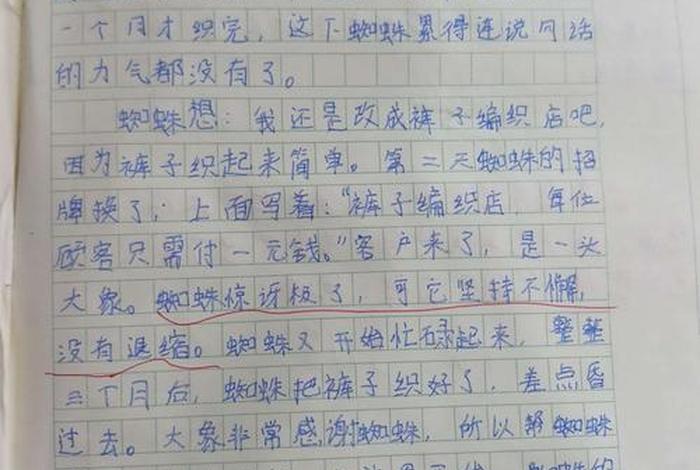 一个月才织完，这下蜘蛛累得连说句话
的力气都没有了。
蜘蛛想：我还是改成裤子编织店吧，
因为裤子织起来简单。第二天蜘蛛的招
牌换了，上面写着：“裤子编织店，每位
顾客只需付一元钱。”客户来了，是一头
大象。蜘蛛惊讶极了，可它坚持不懈，
没有退缩。蜘蛛又开始忙碌起来，整整
三个月后，蜘蛛把裤子织好了，差点昏
过去。大象非常感谢蜘蛛，所以帮蜘蛛